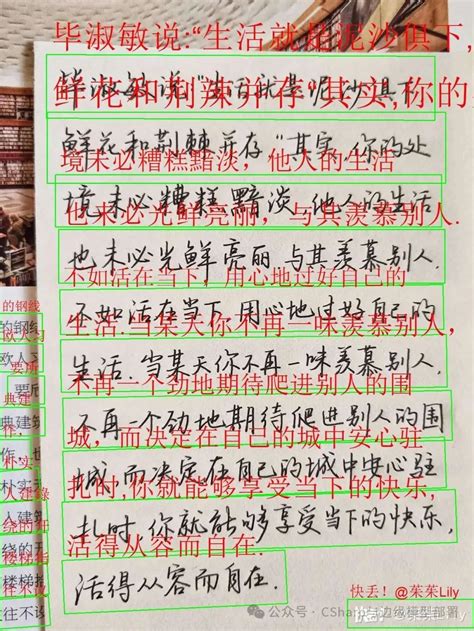 毕淑敏说:“生活就是泥沙俱下,
鲜花和荆棘并存”其实,你的处
境未必糟糕黯淡,他人的生活
也未必光鲜亮丽,与其羡慕别人.
不如活在当下,用心地过好自己的
生活.当某天你不再一味羡慕别人,
不再一个劲地期待爬进别人的围
城,而决定在自己的城中安心驻
扎时,你就能够享受当下的快乐,
活得从容而自在.
毕淑敏说:“生活就是泥沙俱下,
鲜花和荆辣并存“其实,你的
境未必糟糕黯淡,他人的生活
也未必光鲜亮丽,与其羡慕别人.
不如活在当下,用心地过好自己的
生活.当某天你不再一味羡慕别人,
不再一个劲地期待爬进别人的围
城,而决定在自己的城中安心驻
扎时,你就能够享受当下的快乐,
活得从容而自在.
的钢线
欢人习
要所
典建
作,
朴实
人建
绕的
楼梯指
往不设
快丢!@茱茱Lily
公众号·CSharp与边缘模型部署